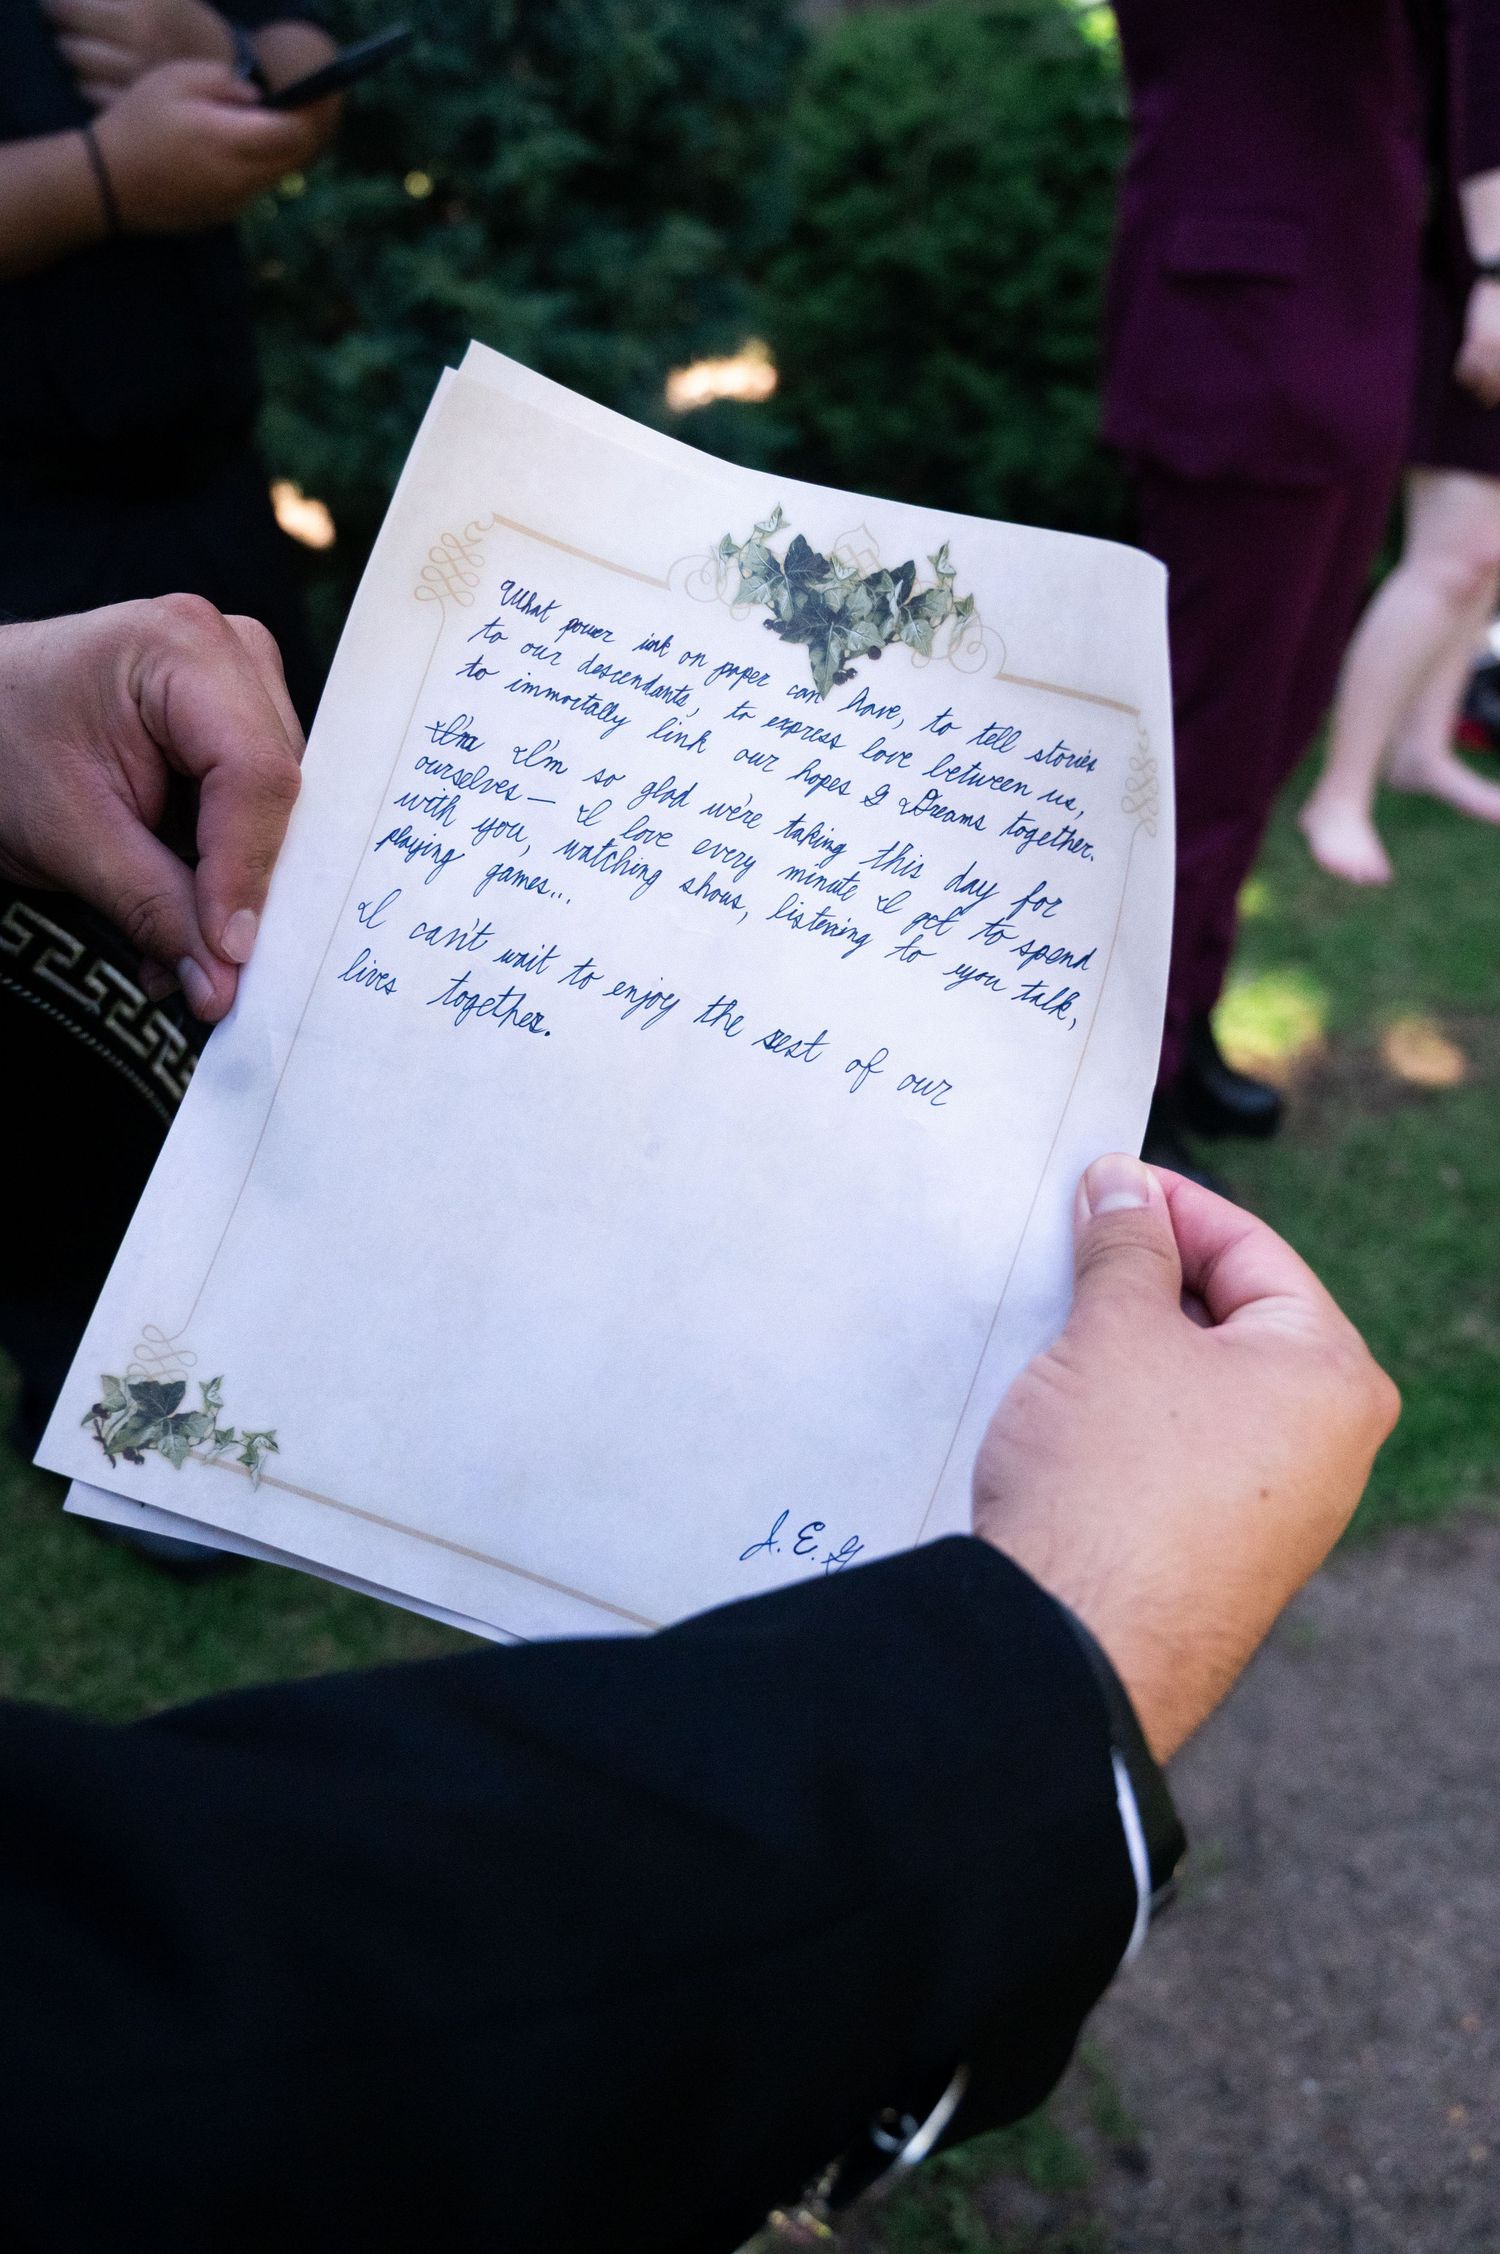 What power ink on paper can have, to tell stories
to our descendants, to express love between us,
to immortally link our hopes & Dreams together.
I'm I'm so glad we're taking this day for
ourselves — I love every minute I get to spend
with you, watching shows, listening to you talk,
playing games...
I can't wait to enjoy the rest of our
lives together.
J. E. G